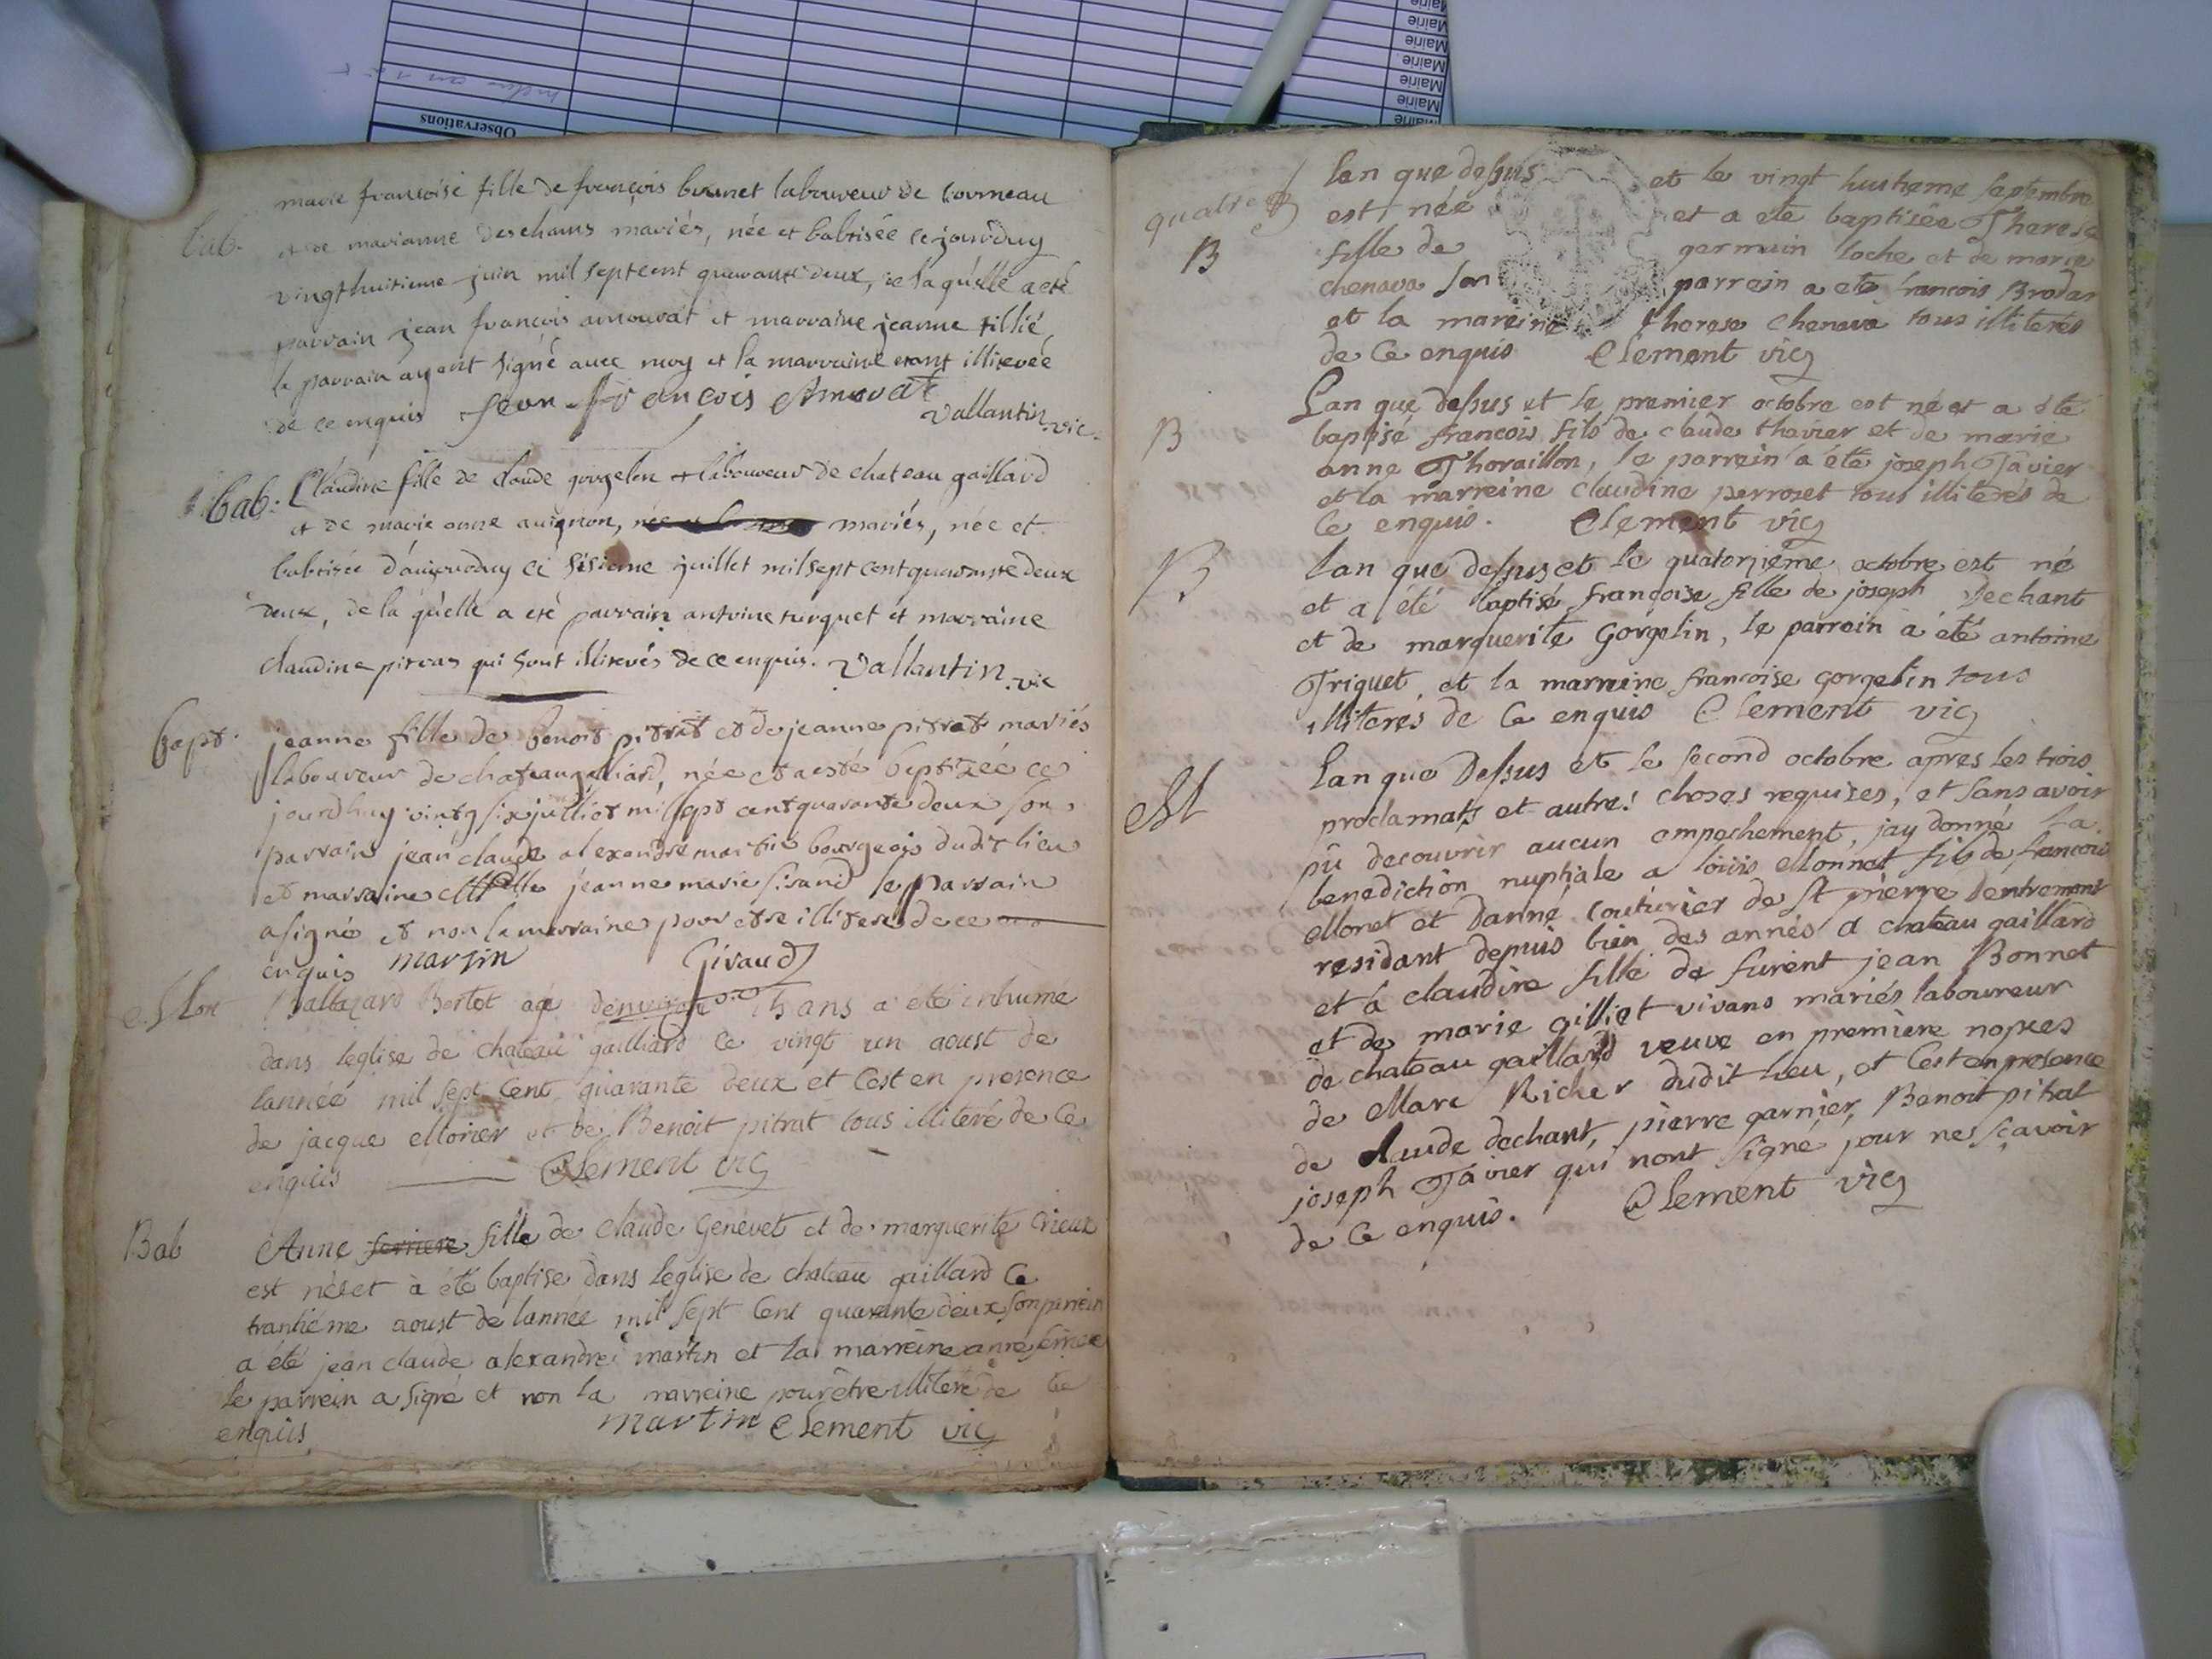 Observations
Mairie
Mairie
Mairie
Mairie
Mairie
Mairie
bab.
marie francoise fille de françois brunet laboureur de cormeau
et de marianne deschams mariés, née et babtisée cejourduy
vingthuitieme juin mil septcent quarante deux, de laquelle a eté
parrain jean françois arnouvat et marraine jeanne tillié
le parrain ayent signé avec moy et la marraine etant illirevée
de ce enquis Jean François Arnovat
Vallantin vic.
bab. Claudine fille de claude gorgelin laboureur de chateau gaillard
et de marie anne avignon, mariés, née et
babtisée d'aujourduy ce sisieme juillet mil sept cent quarante deux
deux, de la quelle a eté parrain antoine turquet et marraine
claudine pirvas qui sont illirevés de ce enquis. Vallantin vic
bapt. jeanne fille de benoit pitrat et de jeanne pitrat mariés
laboureur de chateaugalliard, née et a esté baptizée ce
jourdhuy vintg six julliet mil sept cent quarante deux son
parrain jean claude alexandre martin bourgeois dudit lieu
et marraine jeanne marie sirand le parrain
a signé et non la marraine pour etre illiteré de ce
enquis martin Givaud
Mor Baltazard Bertet agé denviron ans a été inhume
dans leglise de chateau gailliard ce vingt un aoust de
lannée mil sept cent quarante deux et cest en presence
de jacque Morier et de Benoit pitrat tous illiteré de ce
enquis Clement vic
Bab Anne ferriere fille de claude Genevet et de marguerite Crieux
est née et à été baptise dans leglise de chateau gaillard ce
trantiéme aoust de lannée mil sept cent quarante deux son parrein
a été jean claude alexandre martin et la marreine anne
le parrein a signé et non la marreine pour être illiteré de ce
enquis martin Clement vic
quatre
B
lan que dessus et le vingt huitieme septembre
est née et a eté baptisée Therese
fille de germain loche et de marie
chenava son parrein a eté francois Brodar
et la mareine therese chenava tous illiterés
de ce enquis Clement vic
B
Lan que dessus et le premier octobre est né et a été
baptisé francois fils de claude thavier et de marie
anne Thoraillon, le parrein a été joseph Tavier
et la marreine claudine perroset tous illiterés de
ce enquis. Clement vic
B
lan que dessus et le quatorziéme octobre est né
et a été baptisé françoise fille de joseph Dechant
et de marguerite Gorgelin, le parrein a été antoine
Triquet, et la marreine francoise gorgelin tous
illiterés de ce enquis Clement vic
M
lan que dessus et le second octobre apres les trois
proclamats et autres choses requises, et sans avoir
pû decouvrir aucun empechement, jay donné la
benediction nuptiale a louis Monnet fils de francois
Monet et Danné couturier de St pierre Dentremont
residant depuis bien des annés a chateau gaillard
et à claudine fille de furent jean Bonnet
et de marie gilliet vivans mariés laboureur
de chateau gaillard veuve en premiere nopces
de Marc Richer dudit lieu, et cest en presence
de claude dechant, pierre garnier, Benoit pitrat
joseph Tavier qui nont signé pour ne sçavoir
de ce enquis. Clement vic